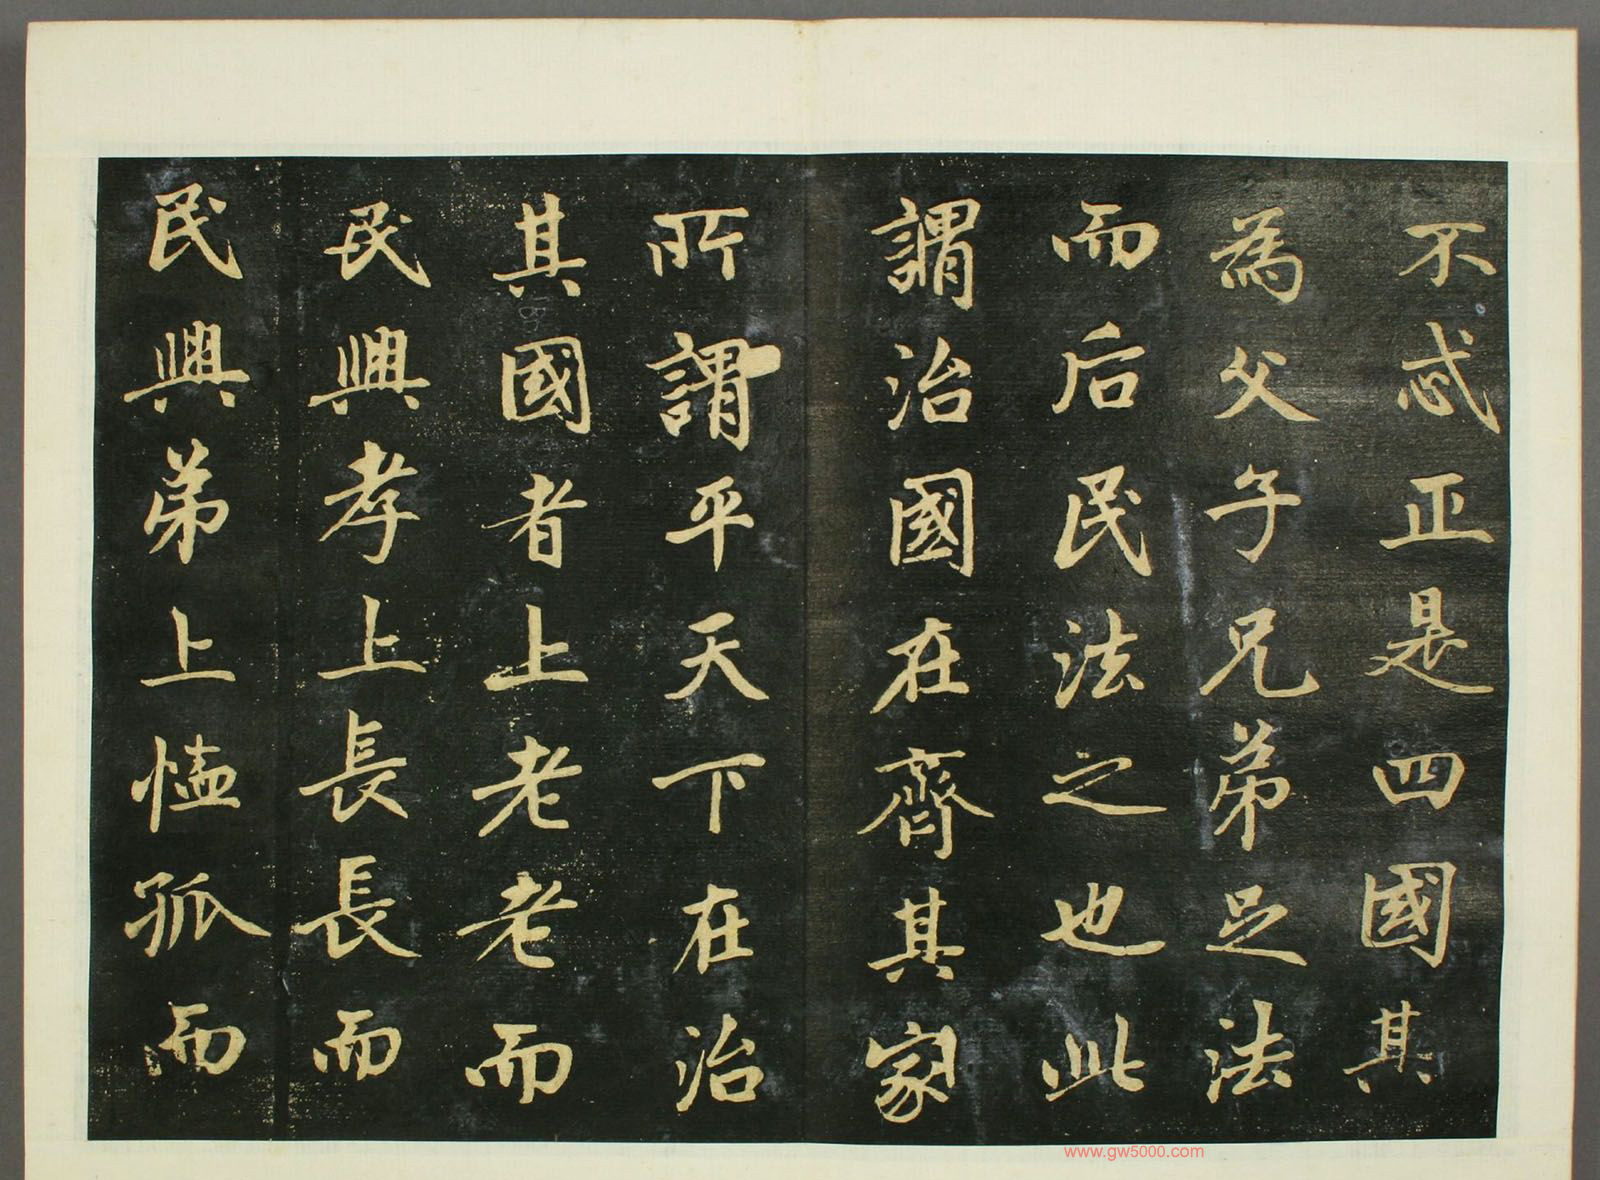 不忒正是四國其
為父子兄弟足法
而后民法之也此
謂治國在齊其家
所謂平天下在治
其國者上老老而
民興孝上長長而
民興弟上恤孤而
www.gw5000.com